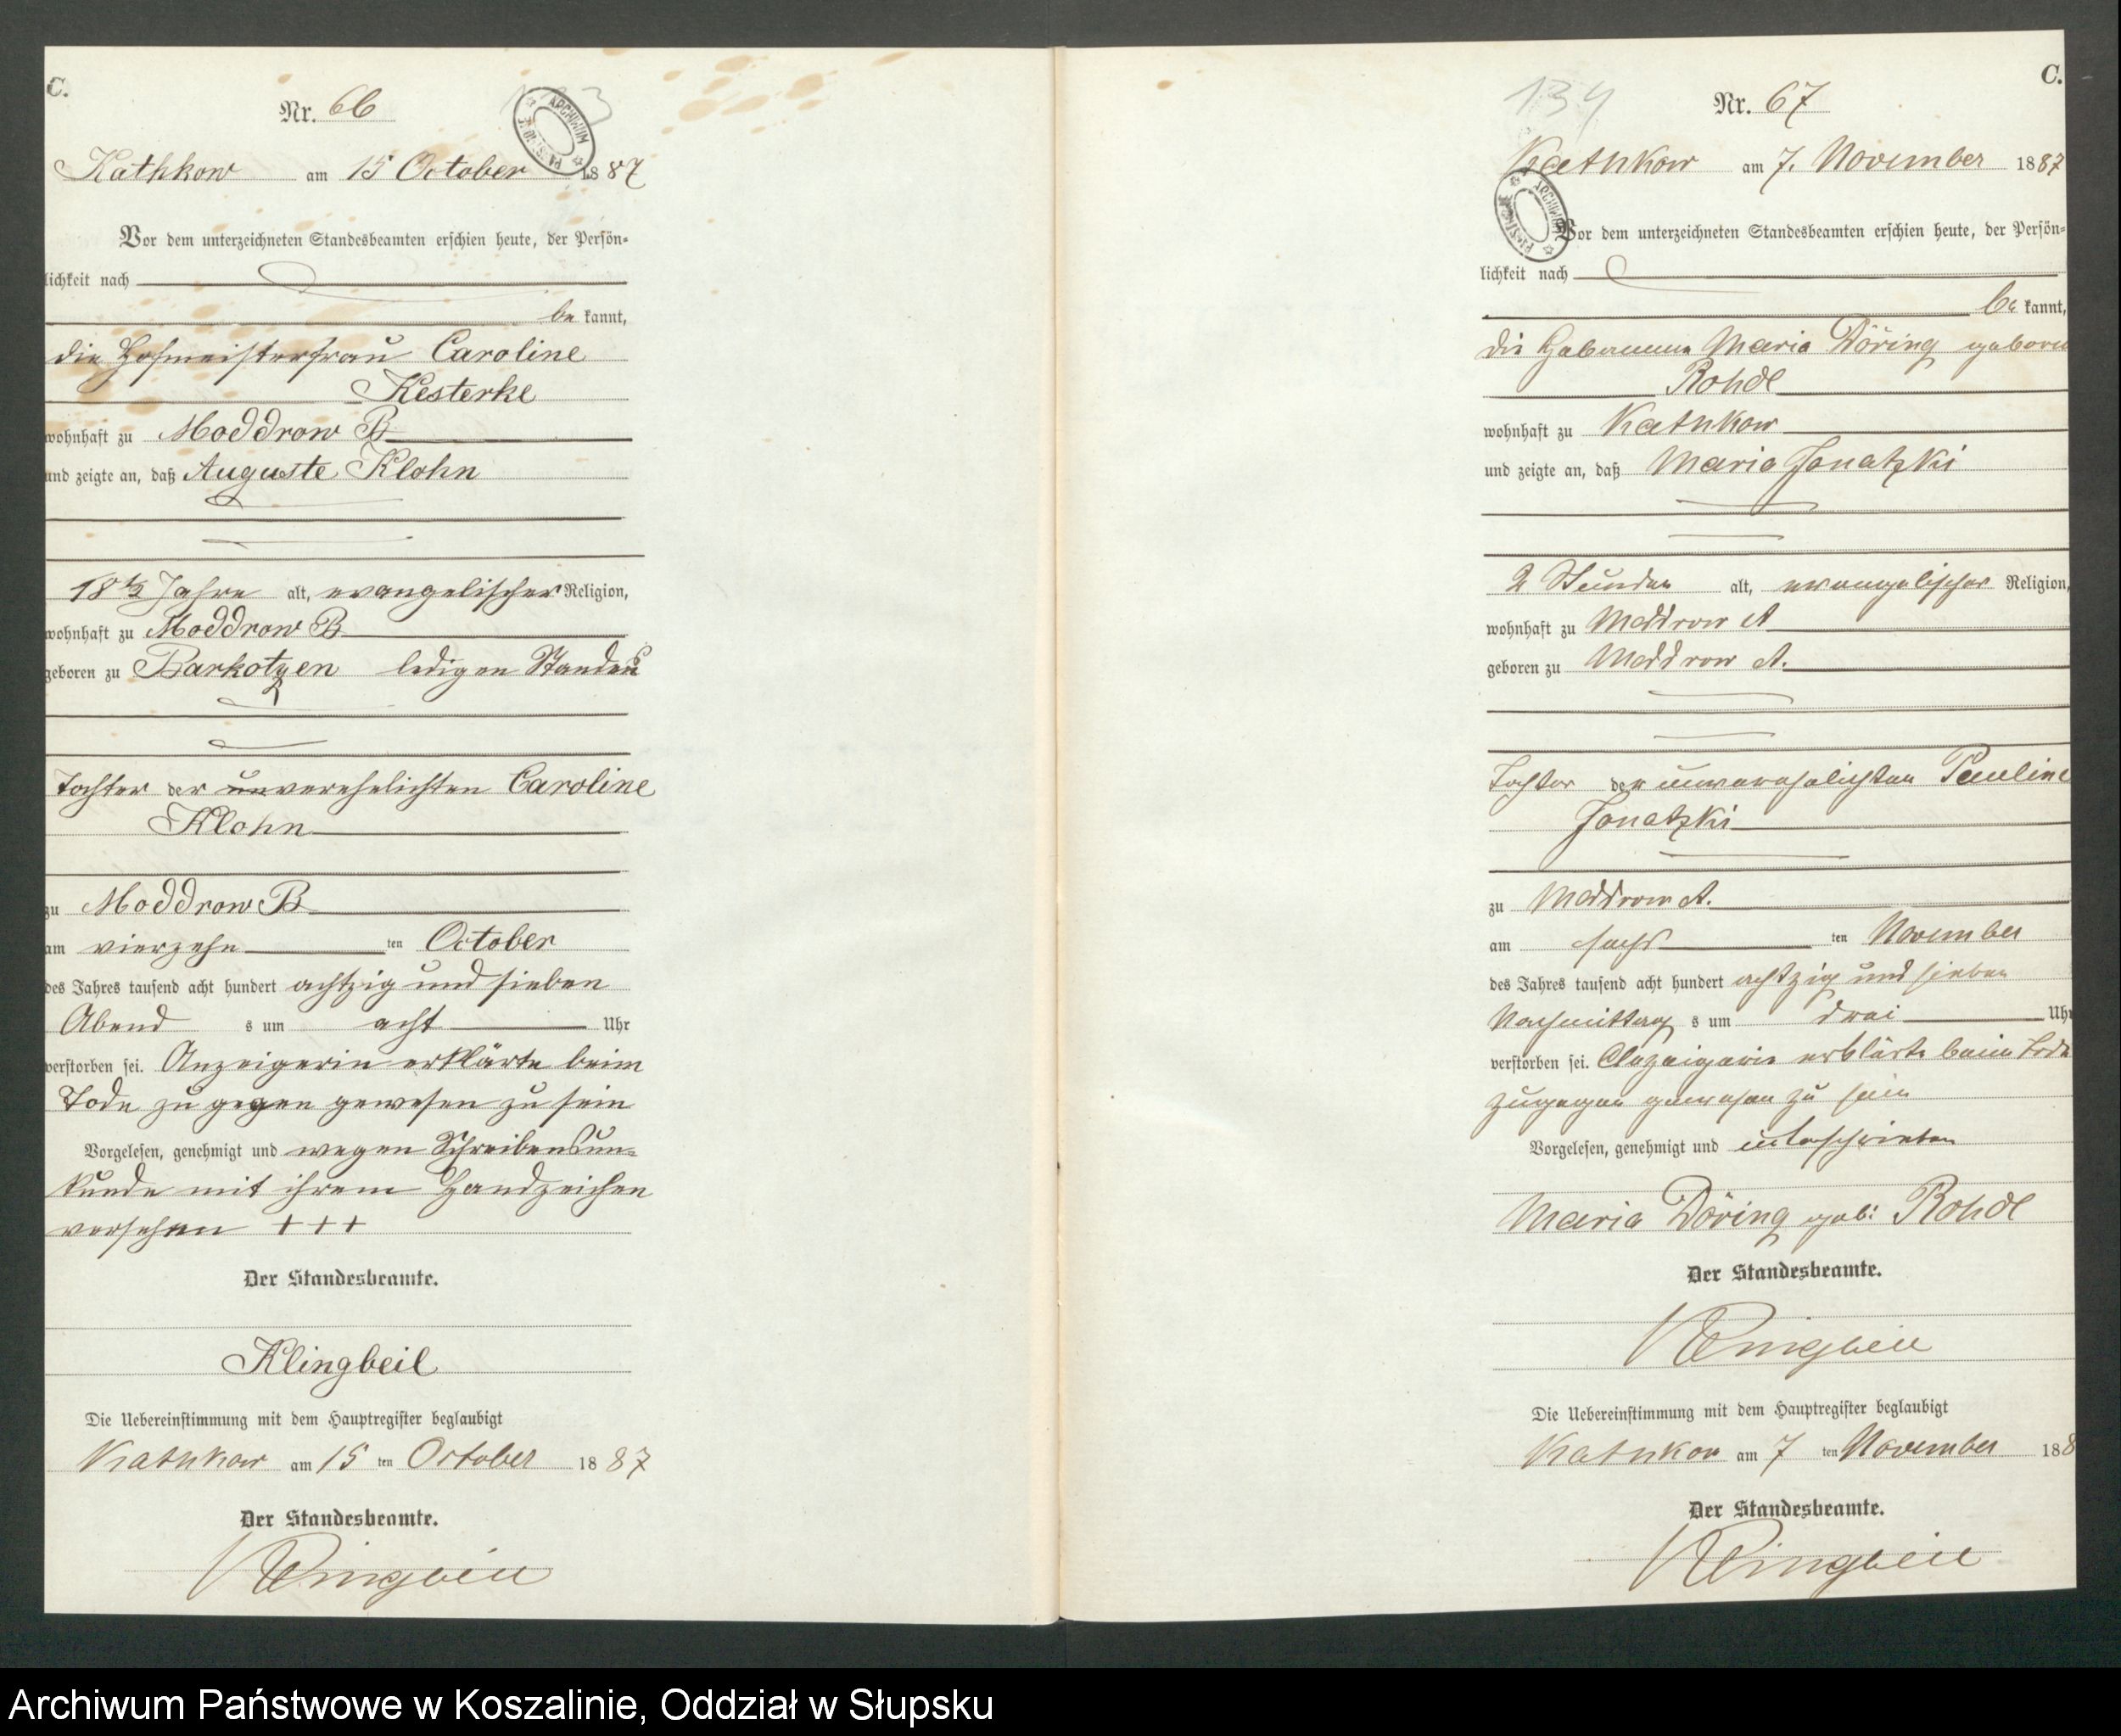 C.
Nr. 66
ARCHIWUM
Kathkow am 15 October 1887
Vor dem unterzeichneten Standesbeamten erschien heute, der Persön-
lichkeit nach
be kannt,
die Hofmeisterfrau Caroline
Kesterke
wohnhaft zu Moddrow B
und zeigte an, daß Auguste Klohn
18 ½ Jahre alt, evangelischer Religion,
wohnhaft zu Moddrow B
geboren zu Barkotzen ledigen Standes
Tochter der unverehelichten Caroline
Klohn
zu Moddrow B
am vierzehn ten October
des Jahres tausend acht hundert achtzig und sieben
Abend s um acht Uhr
verstorben sei. Anzeigerin erklärte beim
Tode zu gegen gewesen zu sein
Vorgelesen, genehmigt und wegen Schreibensun-
kunde mit ihrem Handzeichen
versehen +++
Der Standesbeamte.
Klingbeil
Die Uebereinstimmung mit dem Hauptregister beglaubigt
Kathkow am 15 ten October 1887
Der Standesbeamte.
Klingbeil
C.
134
Nr. 67
Kathkow am 7. November 1887
ARCHIWUM
Vor dem unterzeichneten Standesbeamten erschien heute, der Persön-
lichkeit nach
be kannt,
die Hebamme Maria Döring geboren
Rohde
wohnhaft zu Kathkow
und zeigte an, daß Maria Jonatzki
2 Stunden alt, evangelischer Religion,
wohnhaft zu Moddrow A
geboren zu Moddrow A.
Tochter der unverehelichten Pauline
Jonatzki
zu Moddrow A.
am sechs ten November
des Jahres tausend acht hundert achtzig und sieben
Nachmittag s um drei Uhr
verstorben sei. Anzeigerin erklärte beim Tode
zugegen gewesen zu sein
Vorgelesen, genehmigt und unterschrieben
Maria Döring geb: Rohde
Der Standesbeamte.
Klingbeil
Die Uebereinstimmung mit dem Hauptregister beglaubigt
Kathkow am 7 ten November 188
Der Standesbeamte.
Klingbeil
Archiwum Państwowe w Koszalinie, Oddział w Słupsku